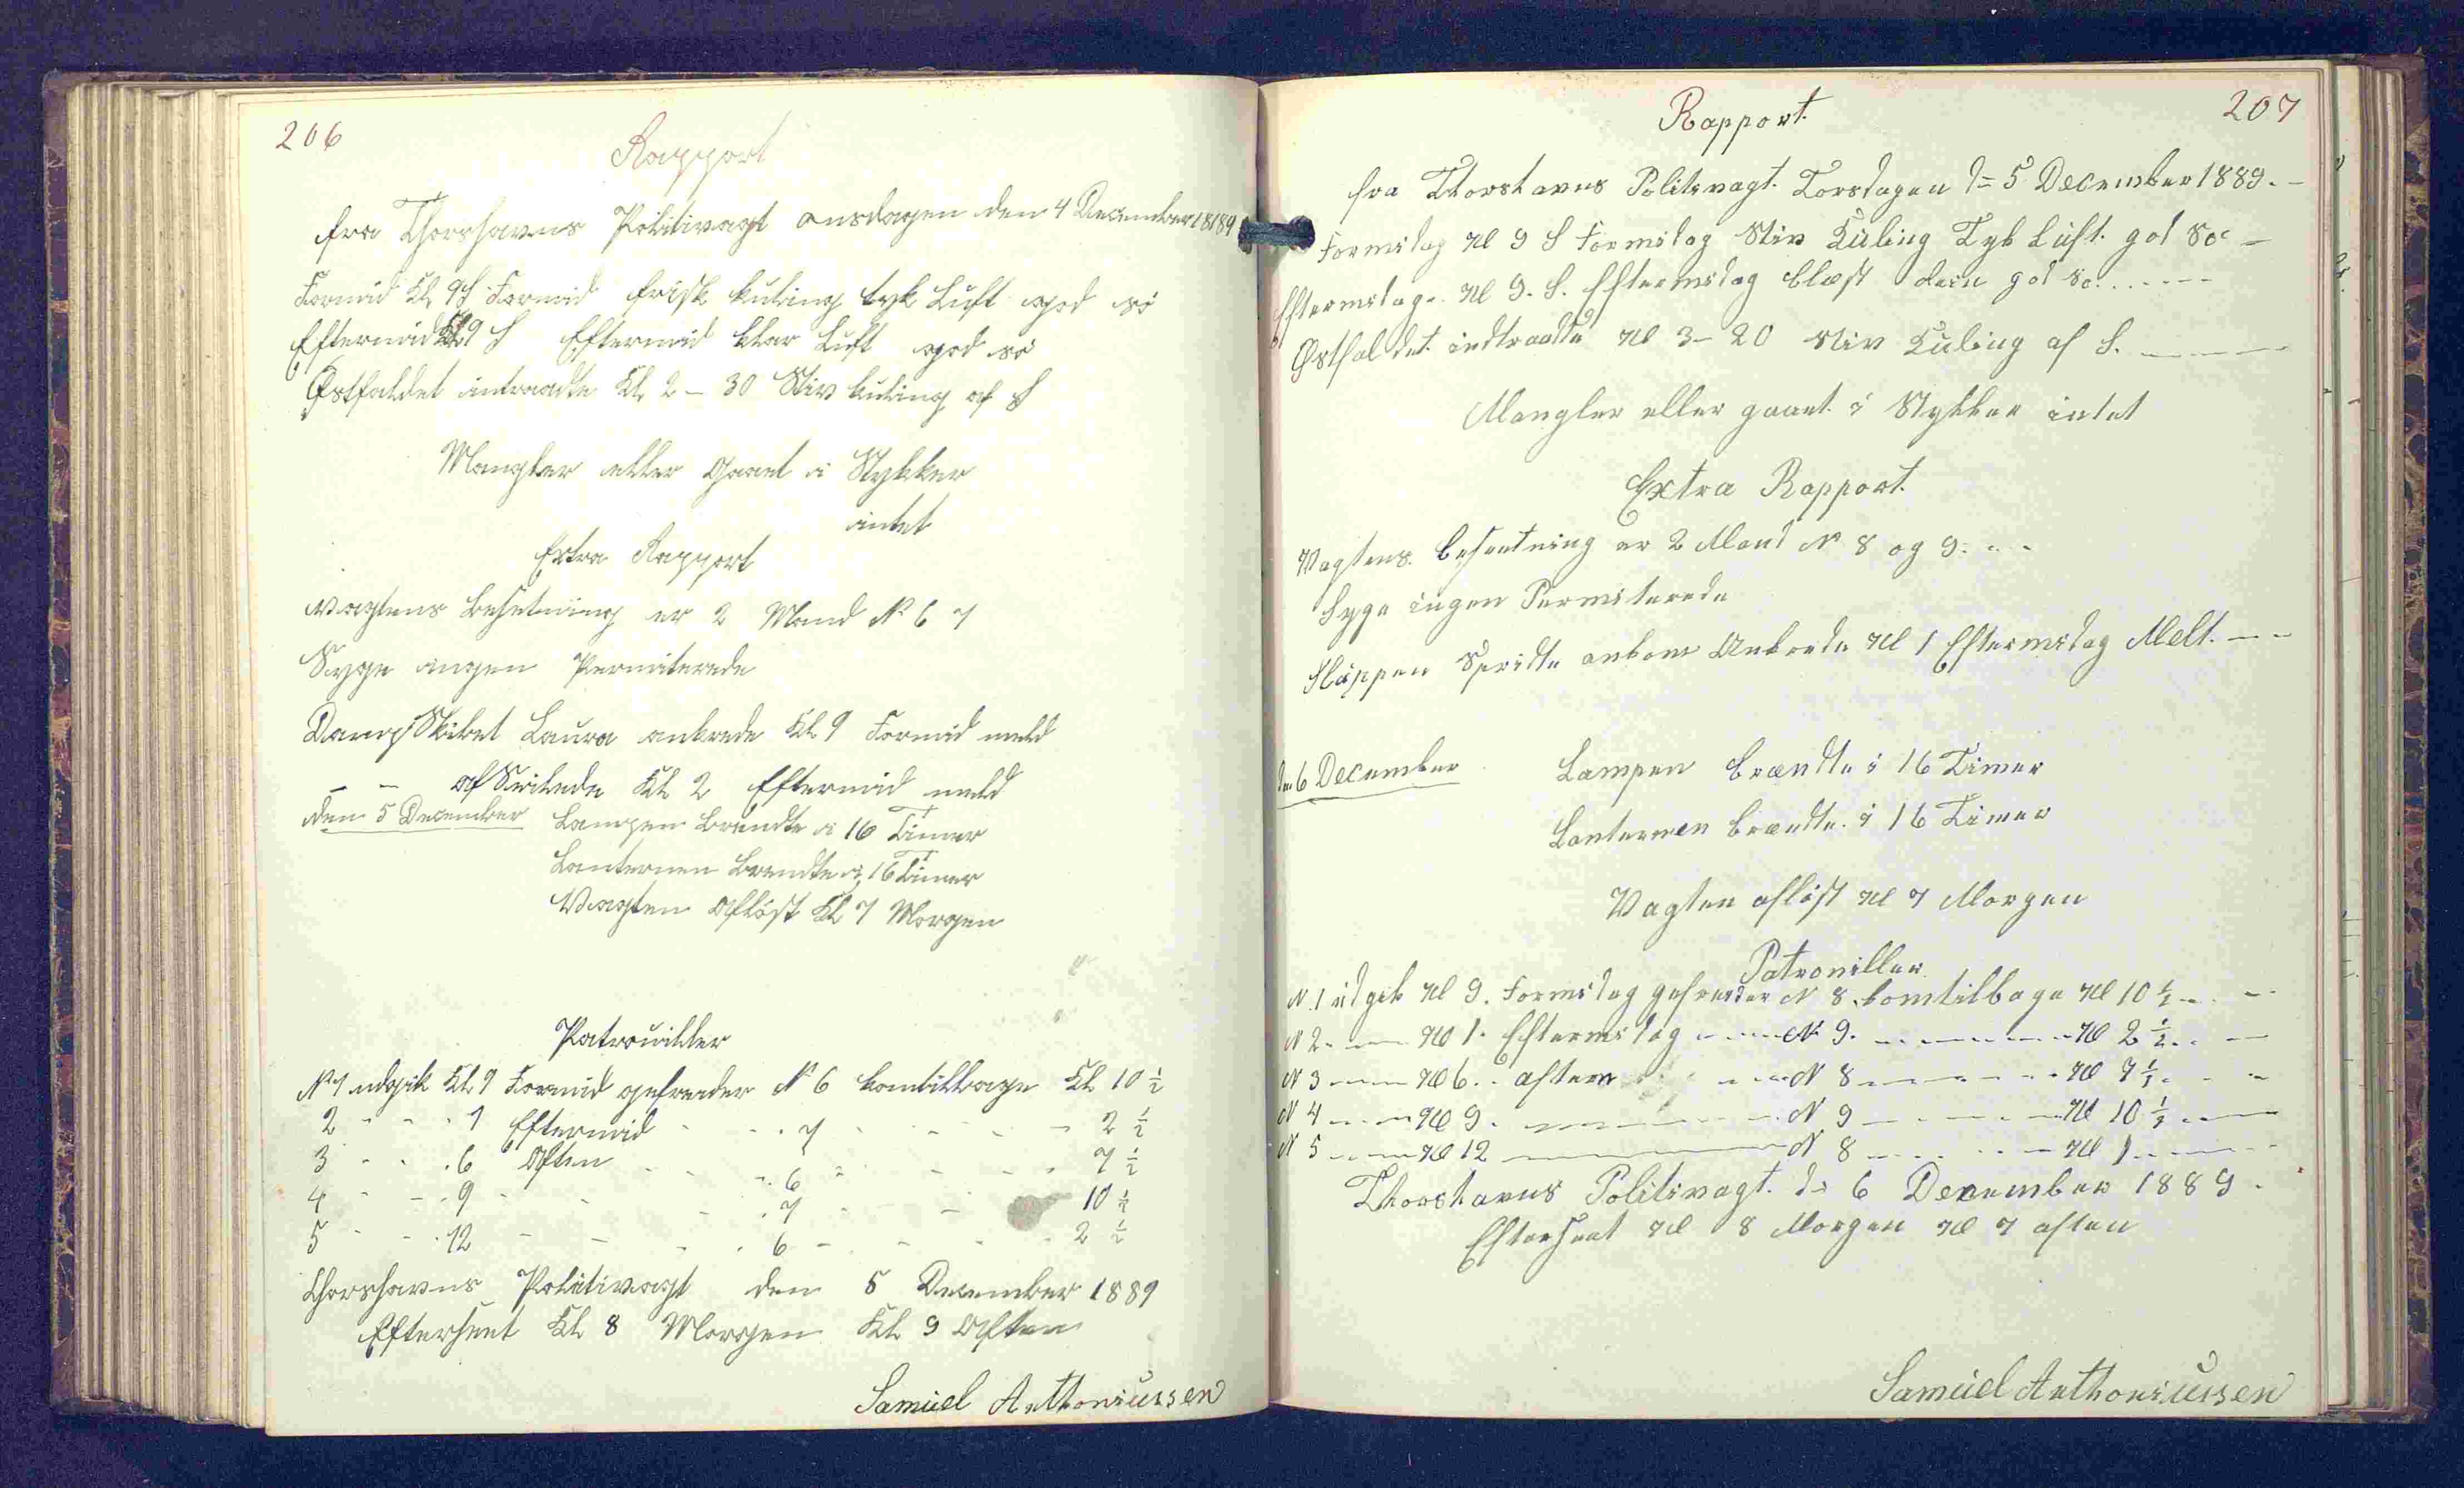 206
Rapport
fra Thorshavns Politivagt onsdagen den 4 December 1889
Formid Kl 9 S Formid frisk kuling tyk Luft god sö
Eftermid Kl 9 S Eftermid klar Luft god sö
Østfaldet intraadte Kl 2 - 30 Stiv kuling af S
Mangler eller Gaaet i Stykker
intet
Extra Rapport
Vagtens Besetning er 2 Mand N 6 7
Syge ingen Permiterede
DampSkibet Laura ankrede Kl 9 Formid meld
- - afSeilede Kl 2 Eftermid meld
den 5 December Lampen Brendte i 16 Timer
Lanternen Brendte i 16 Timer
Vagten Aflöst Kl 7 Morgen
Patrouiller
N 1 udgik Kl 9 Formid gefreider N 6 komtilbage Kl 10 1/2
2 - - . 1 Eftermid - - . 7 - - - - 2 1/2
3 - - . 6 Aften - - - . 6 - - - - 7 1/2
4 - - . 9 - - - . 7 - - - 10 1/2
5 - - . 12 - - - . 6 - - - - 2 1/2
Thorshavns Politivagt den 5 December 1889
Efterseet Kl 8 Morgen Kl 9 Aften
Samuel Anthoniussen
Rapport.
207
fra Thorshavns Politivagt. Torsdagen d= 5 December 1889. -
Formidag Kl 9 S Formidag Stiv Kuling Tyk Luft. god Sö -
Eftermidag. Kl 9. S. Eftermidag blæst god Sö. - - - -
Østfaldet indtraadte Kl 3 - 20 Stiv Kuling af S. - - - -
Mangler eller gaaet i Stykker intet
Extra Rapport.
Vagtens. besætning er 2 Mand N 8 og 9. - -
Syge ingen Permiterede
Sluppen ankom Ankrede Kl 1 Eftermidag Melt. - -
den 6 December Lampen brændte i 16 Timer
Lanternen brændte. i 16 Timer
Vagten aflöst Kl 7 Morgen
Patrouiller
N. 1 udgik Kl 9. Formidag gefreider N 8. komtilbage Kl 10 1/2 - -
N 2. - - Kl 1. Eftermidag - - - N 9. - - - - Kl 2 1/2. - -
N 3 - - - Kl 6. . aften - - - N 8 - - - - - Kl 7 1/2. - -
N 4 - - - Kl 9. - - - - N 9 - - - - - Kl 10 1/2 - -
N 5 - - - Kl 12 - - - - N 8 - - - - - Kl 1 - - -
Thorshavns Politivagt. d= 6 December 1889.
Efterseet Kl 8 Morgen Kl 7 aften
Samuel Anthoniussen